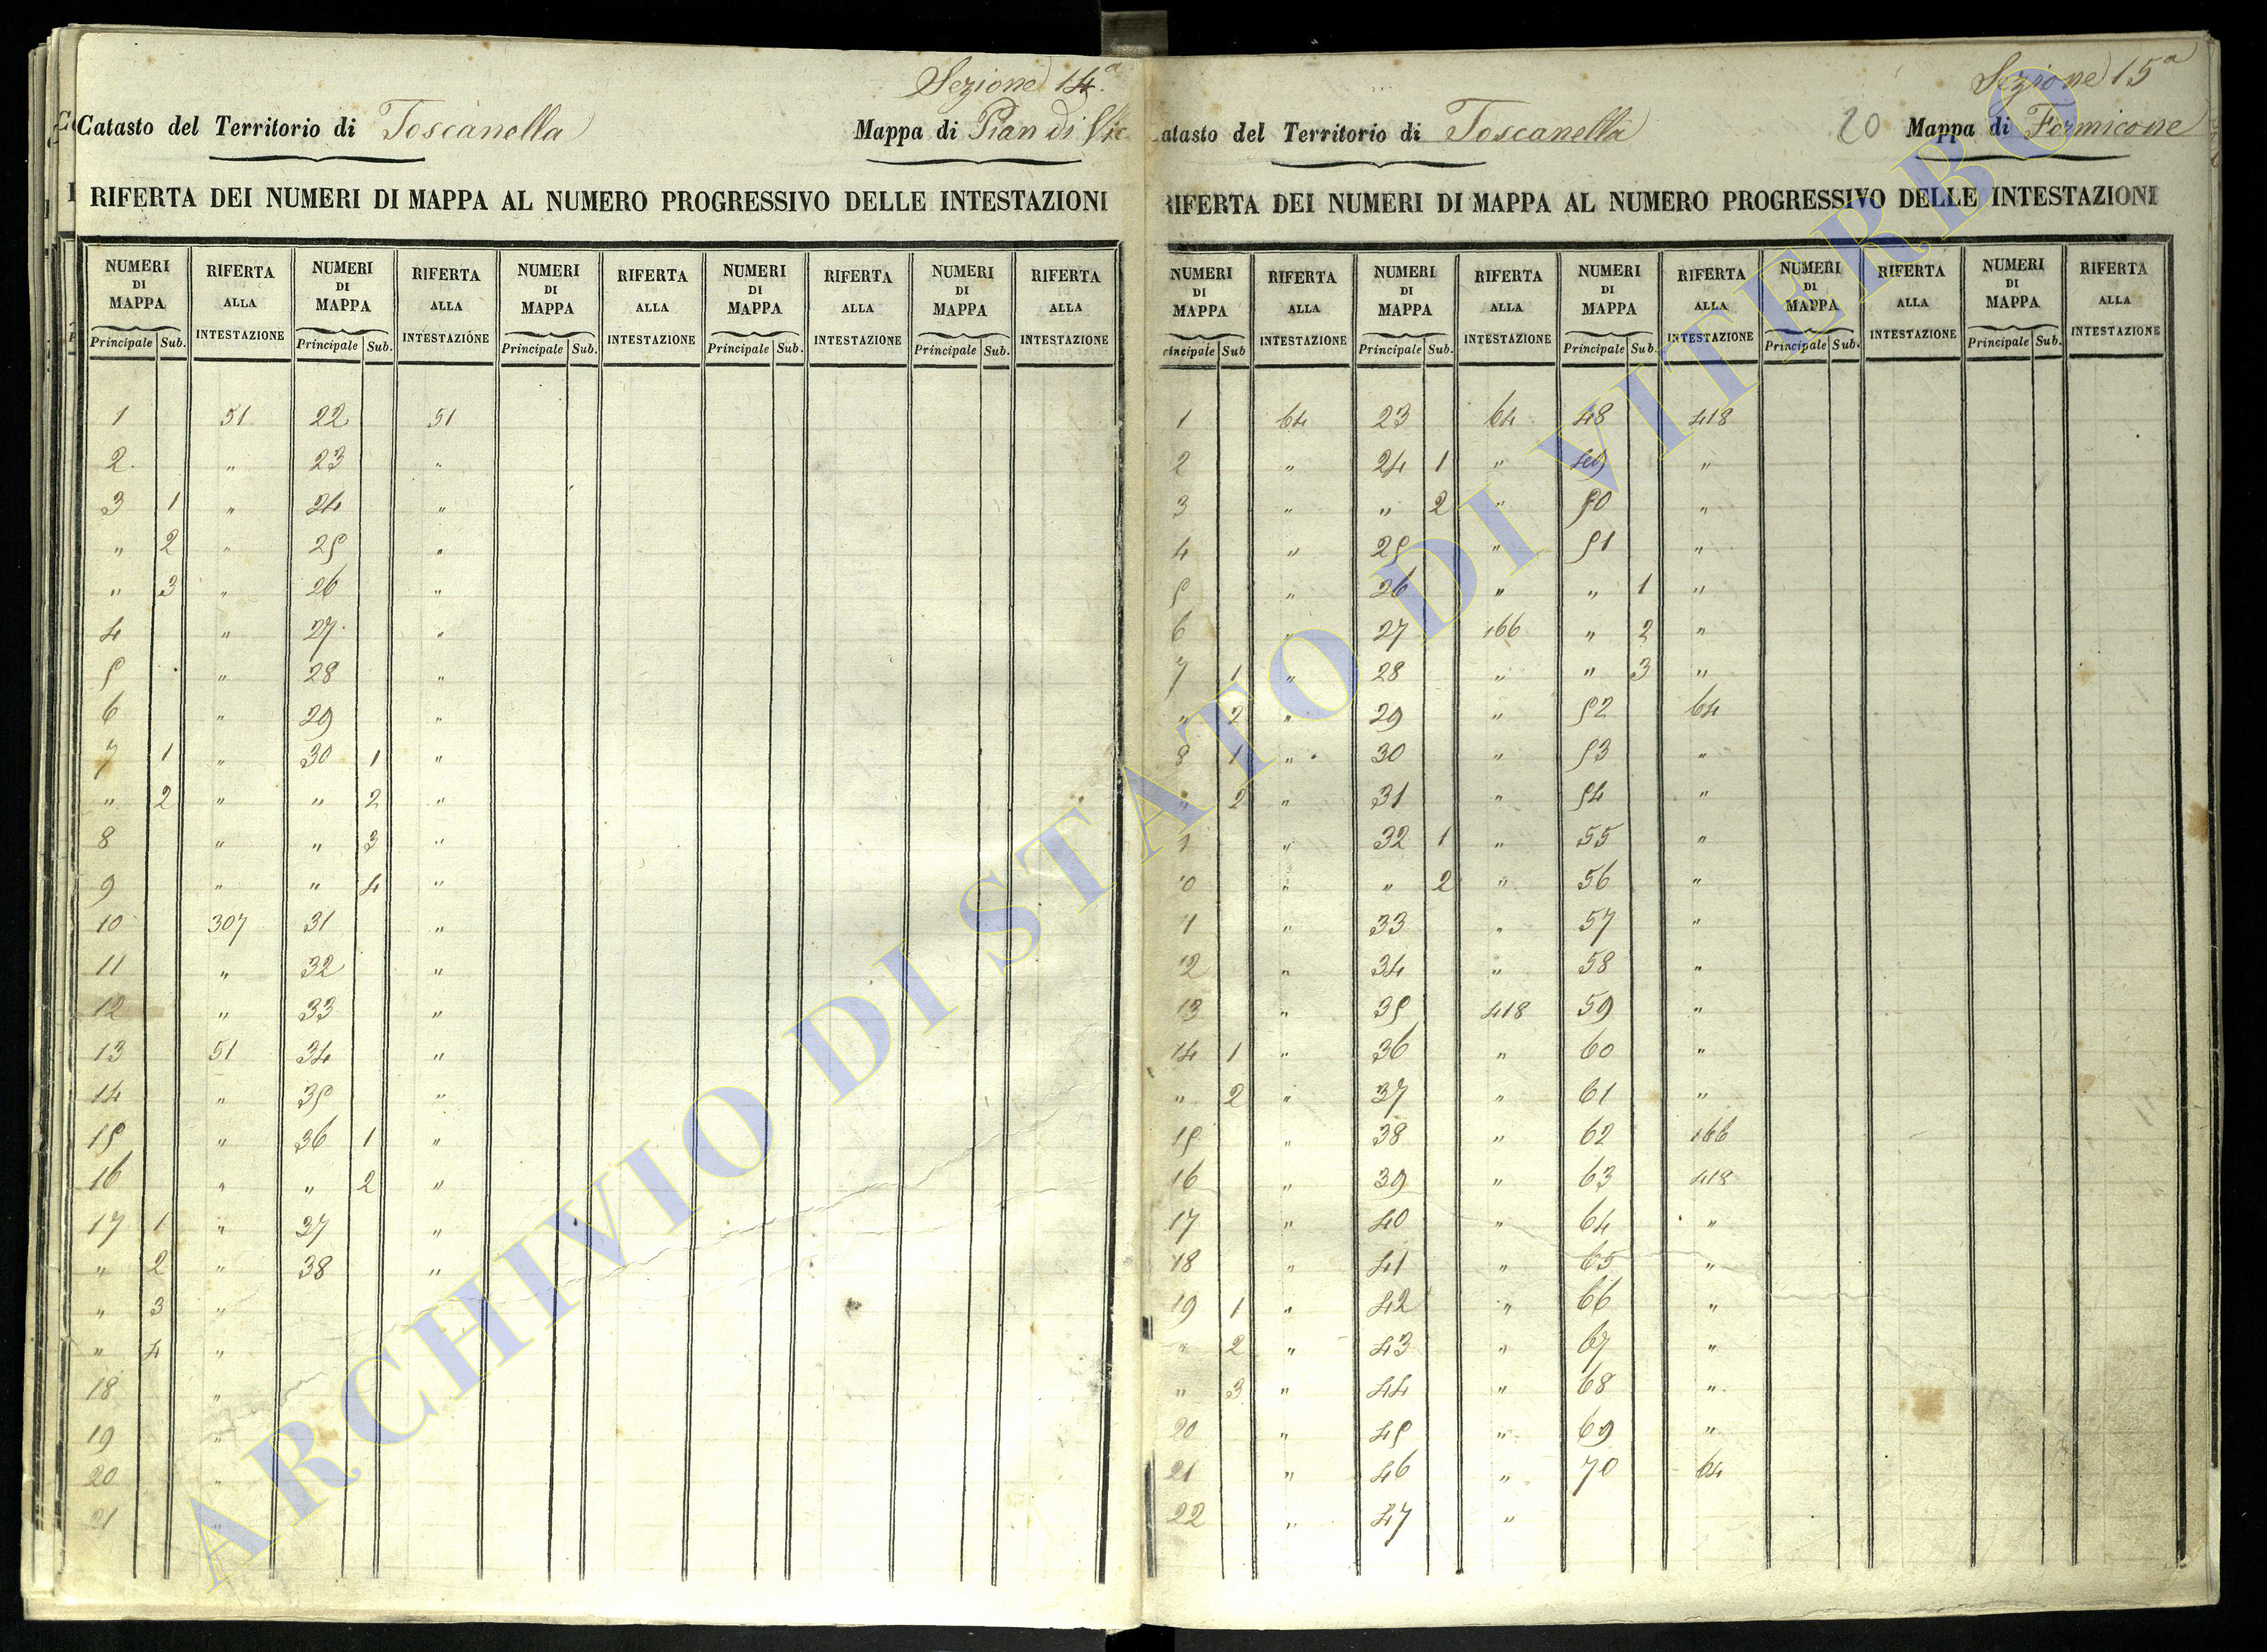 Sezione 14.ª
Catasto del Territorio di Toscanella Mappa di Pian di
RIFERTA DEI NUMERI DI MAPPA AL NUMERO PROGRESSIVO DELLE INTESTAZIONI
NUMERI DI MAPPA RIFERTA ALLA INTESTAZIONE NUMERI DI MAPPA RIFERTA ALLA INTESTAZIONE NUMERI DI MAPPA RIFERTA ALLA INTESTAZIONE NUMERI DI MAPPA RIFERTA ALLA INTESTAZIONE NUMERI DI MAPPA RIFERTA ALLA INTESTAZIONE
Principale Sub. Principale Sub. Principale Sub. Principale Sub. Principale Sub.
1 51 22 51
2. " 23 "
3 1 " 24 "
" 2 " 25 "
" 3 " 26 "
4 " 27 "
5 " 28 "
6 " 29 "
7 1 " 30 1 "
" 2 " " 2 "
8 " " 3 "
9 " " 4 "
10 307 31 "
11 " 32 "
12 " 33 "
13 51 34 "
14 " 35 "
15 " 36 1 "
16 " " 2 "
17 1 " 37 "
" 2 " 38 "
" 3 "
" 4 "
18 "
19 "
20 "
21 "
Sezione 15ª
atasto del Territorio di Toscanella 20 Mappa di Formicone
RIFERTA DEI NUMERI DI MAPPA AL NUMERO PROGRESSIVO DELLE INTESTAZIONI
NUMERI DI MAPPA RIFERTA ALLA INTESTAZIONE NUMERI DI MAPPA RIFERTA ALLA INTESTAZIONE NUMERI DI MAPPA RIFERTA ALLA INTESTAZIONE NUMERI DI MAPPA RIFERTA ALLA INTESTAZIONE NUMERI DI MAPPA RIFERTA ALLA INTESTAZIONE
rincipale Sub Principale Sub. Principale Sub. Principale Sub. Principale Sub.
1 64 23 64 48 418
2 " 24 1 " 49 "
3 " " 2 " 50 "
4 " 25 " 51 "
5 " 26 " " 1 "
6 " 27 166 " 2 "
7 1 " 28 " " 3 "
" 2 " 29 " 52 64
8 1 " 30 " 53 "
" 2 " 31 " 54 "
" 32 1 " 55 "
0 " " 2 " 56 "
1 " 33 " 57 "
12 " 34 " 58 "
13 " 35 418 59 "
14 1 " 36 " 60 "
" 2 " 37 " 61 "
15 " 38 " 62 166
16 " 39 " 63 418
17 " 40 " 64 "
18 " 41 " 65 "
19 1 " 42 " 66 "
" 2 " 43 " 67 "
" 3 " 44 " 68 "
20 " 45 " 69 "
21 " 46 " 70 64
22 " 47 "
ARCHIVIO DI STATO DI VITERBO